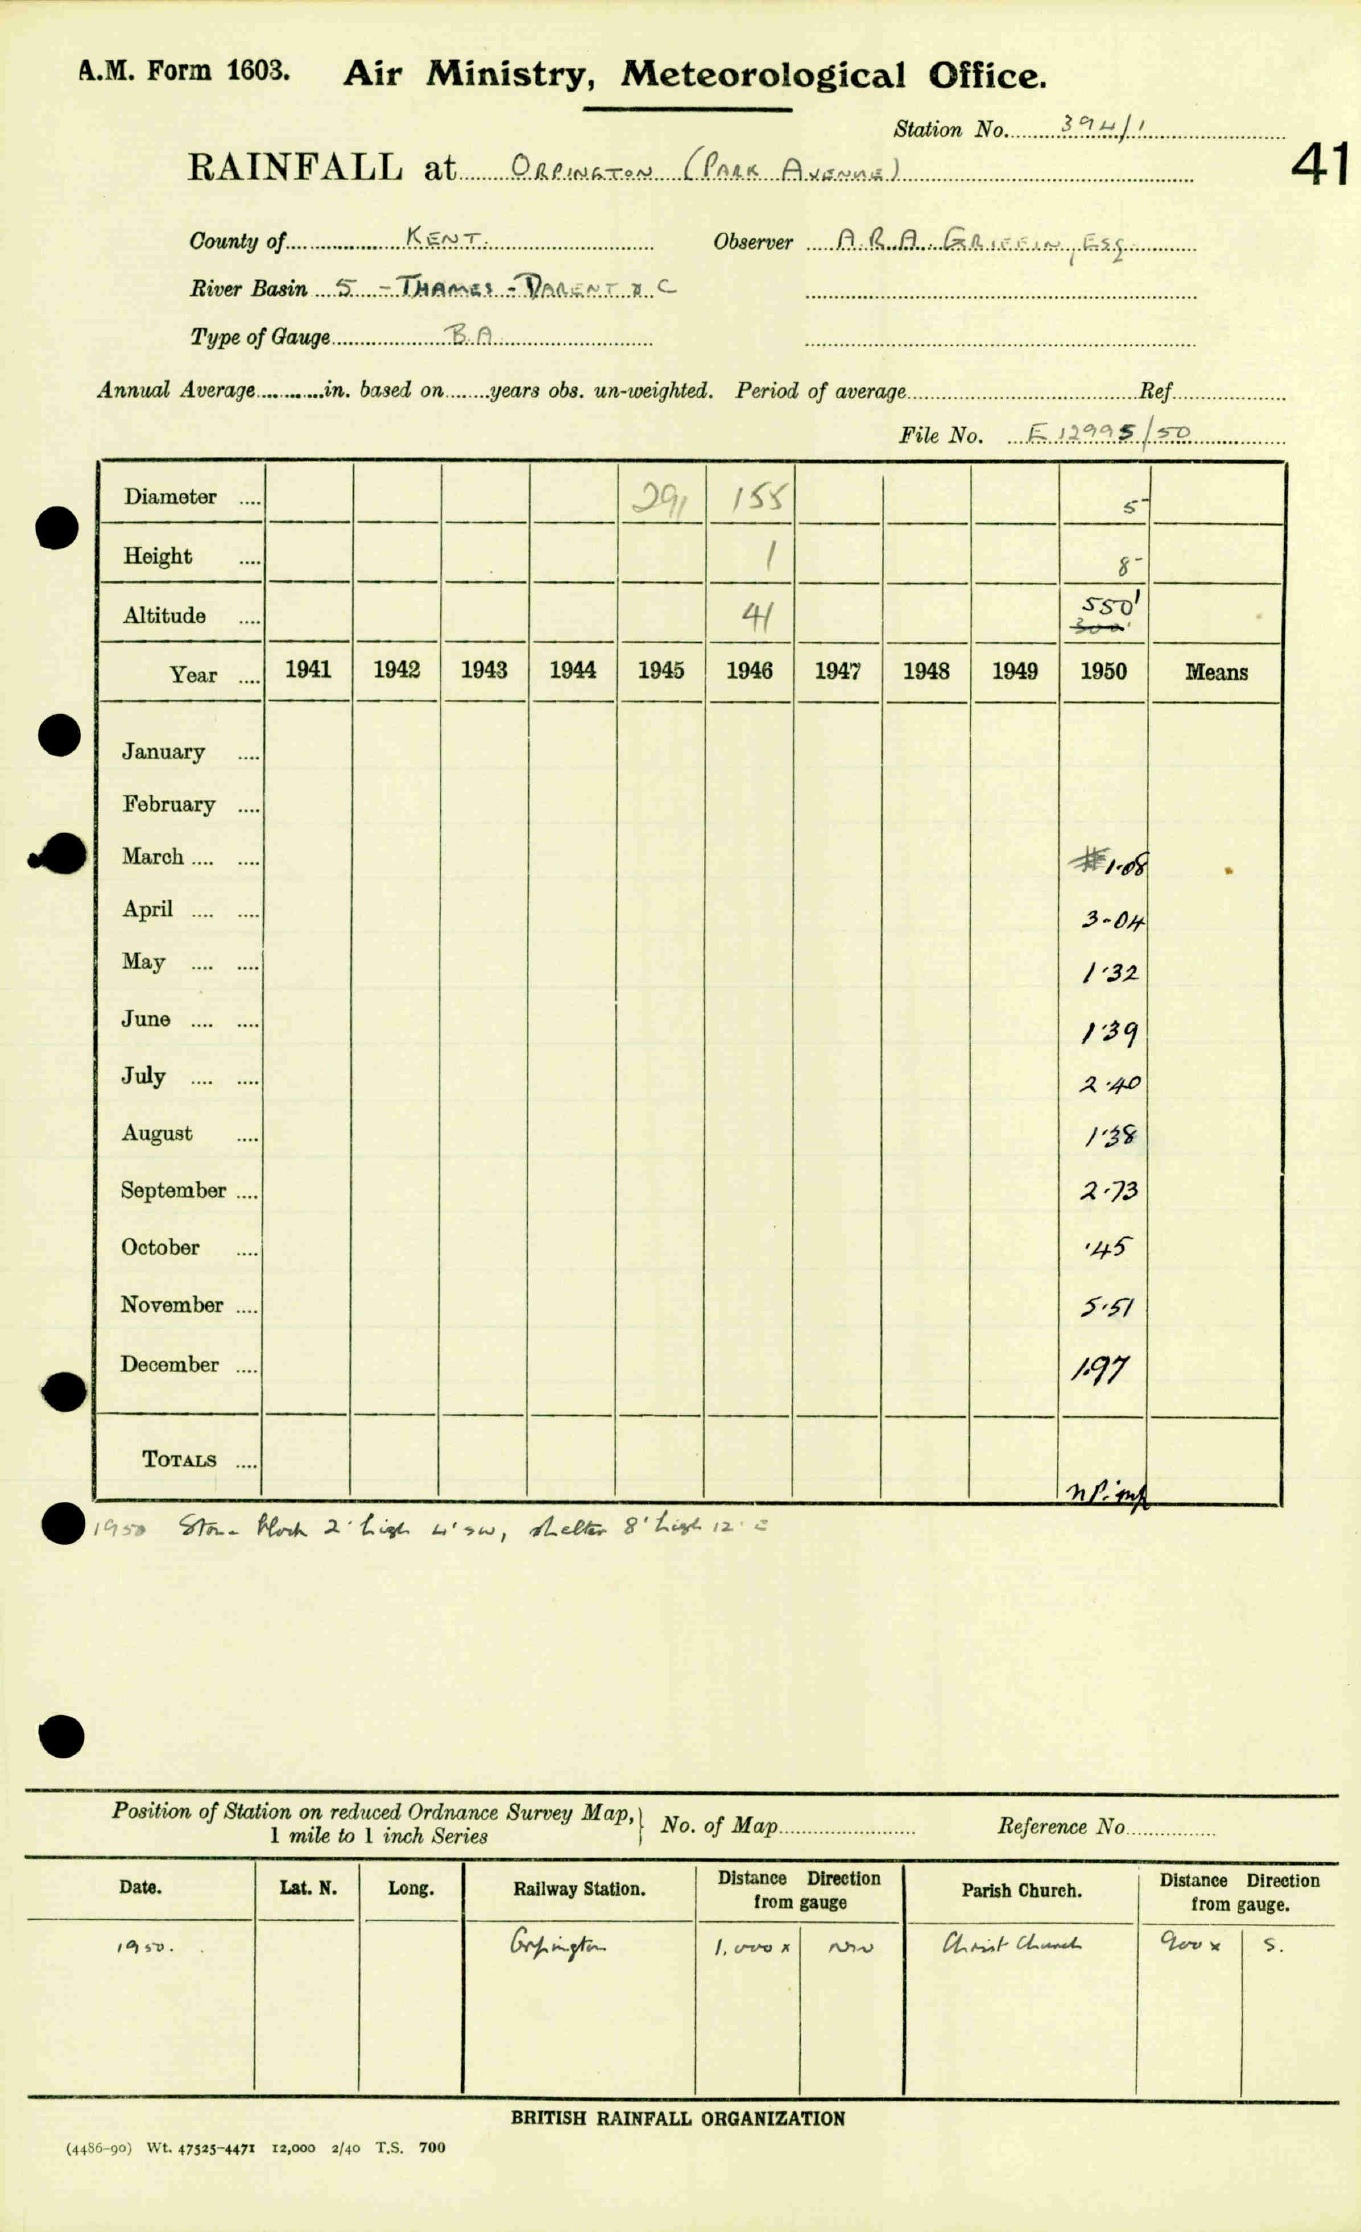 A.M. Form 1603. Air Ministry, Meteorological Office.
Station No. 394/1
41
RAINFALL at ORPINGTON (PARK AVENUE)
County of KENT. Observer A.R.A. GRIFFIN, ESQ.
River Basin 5 - THAMES - DARENT & C
Type of Gauge B.A.
Annual Average in. based on years obs. un-weighted. Period of average Ref
File No. E 12995/50
Diameter 291 155 5
Height 1 8
Altitude 41 550' 300'
Year 1941 1942 1943 1944 1945 1946 1947 1948 1949 1950 Means
January
February
March 1.08
April 3.04
May 1.32
June 1.39
July 2.40
August 1.38
September 2.73
October .45
November 5.51
December 1.97
TOTALS
1950 Stone block 2' high 4' SW, shelter 8' high 12' E
Position of Station on reduced Ordnance Survey Map, 1 mile to 1 inch Series No. of Map Reference No
Date. Lat. N. Long. Railway Station. Distance Direction from gauge Parish Church. Distance Direction from gauge.
1950. Orpington 1,000 x NW Christ Church 900 x S.
BRITISH RAINFALL ORGANIZATION
(4486-90) Wt. 47525-4471 12,000 2/40 T.S. 700